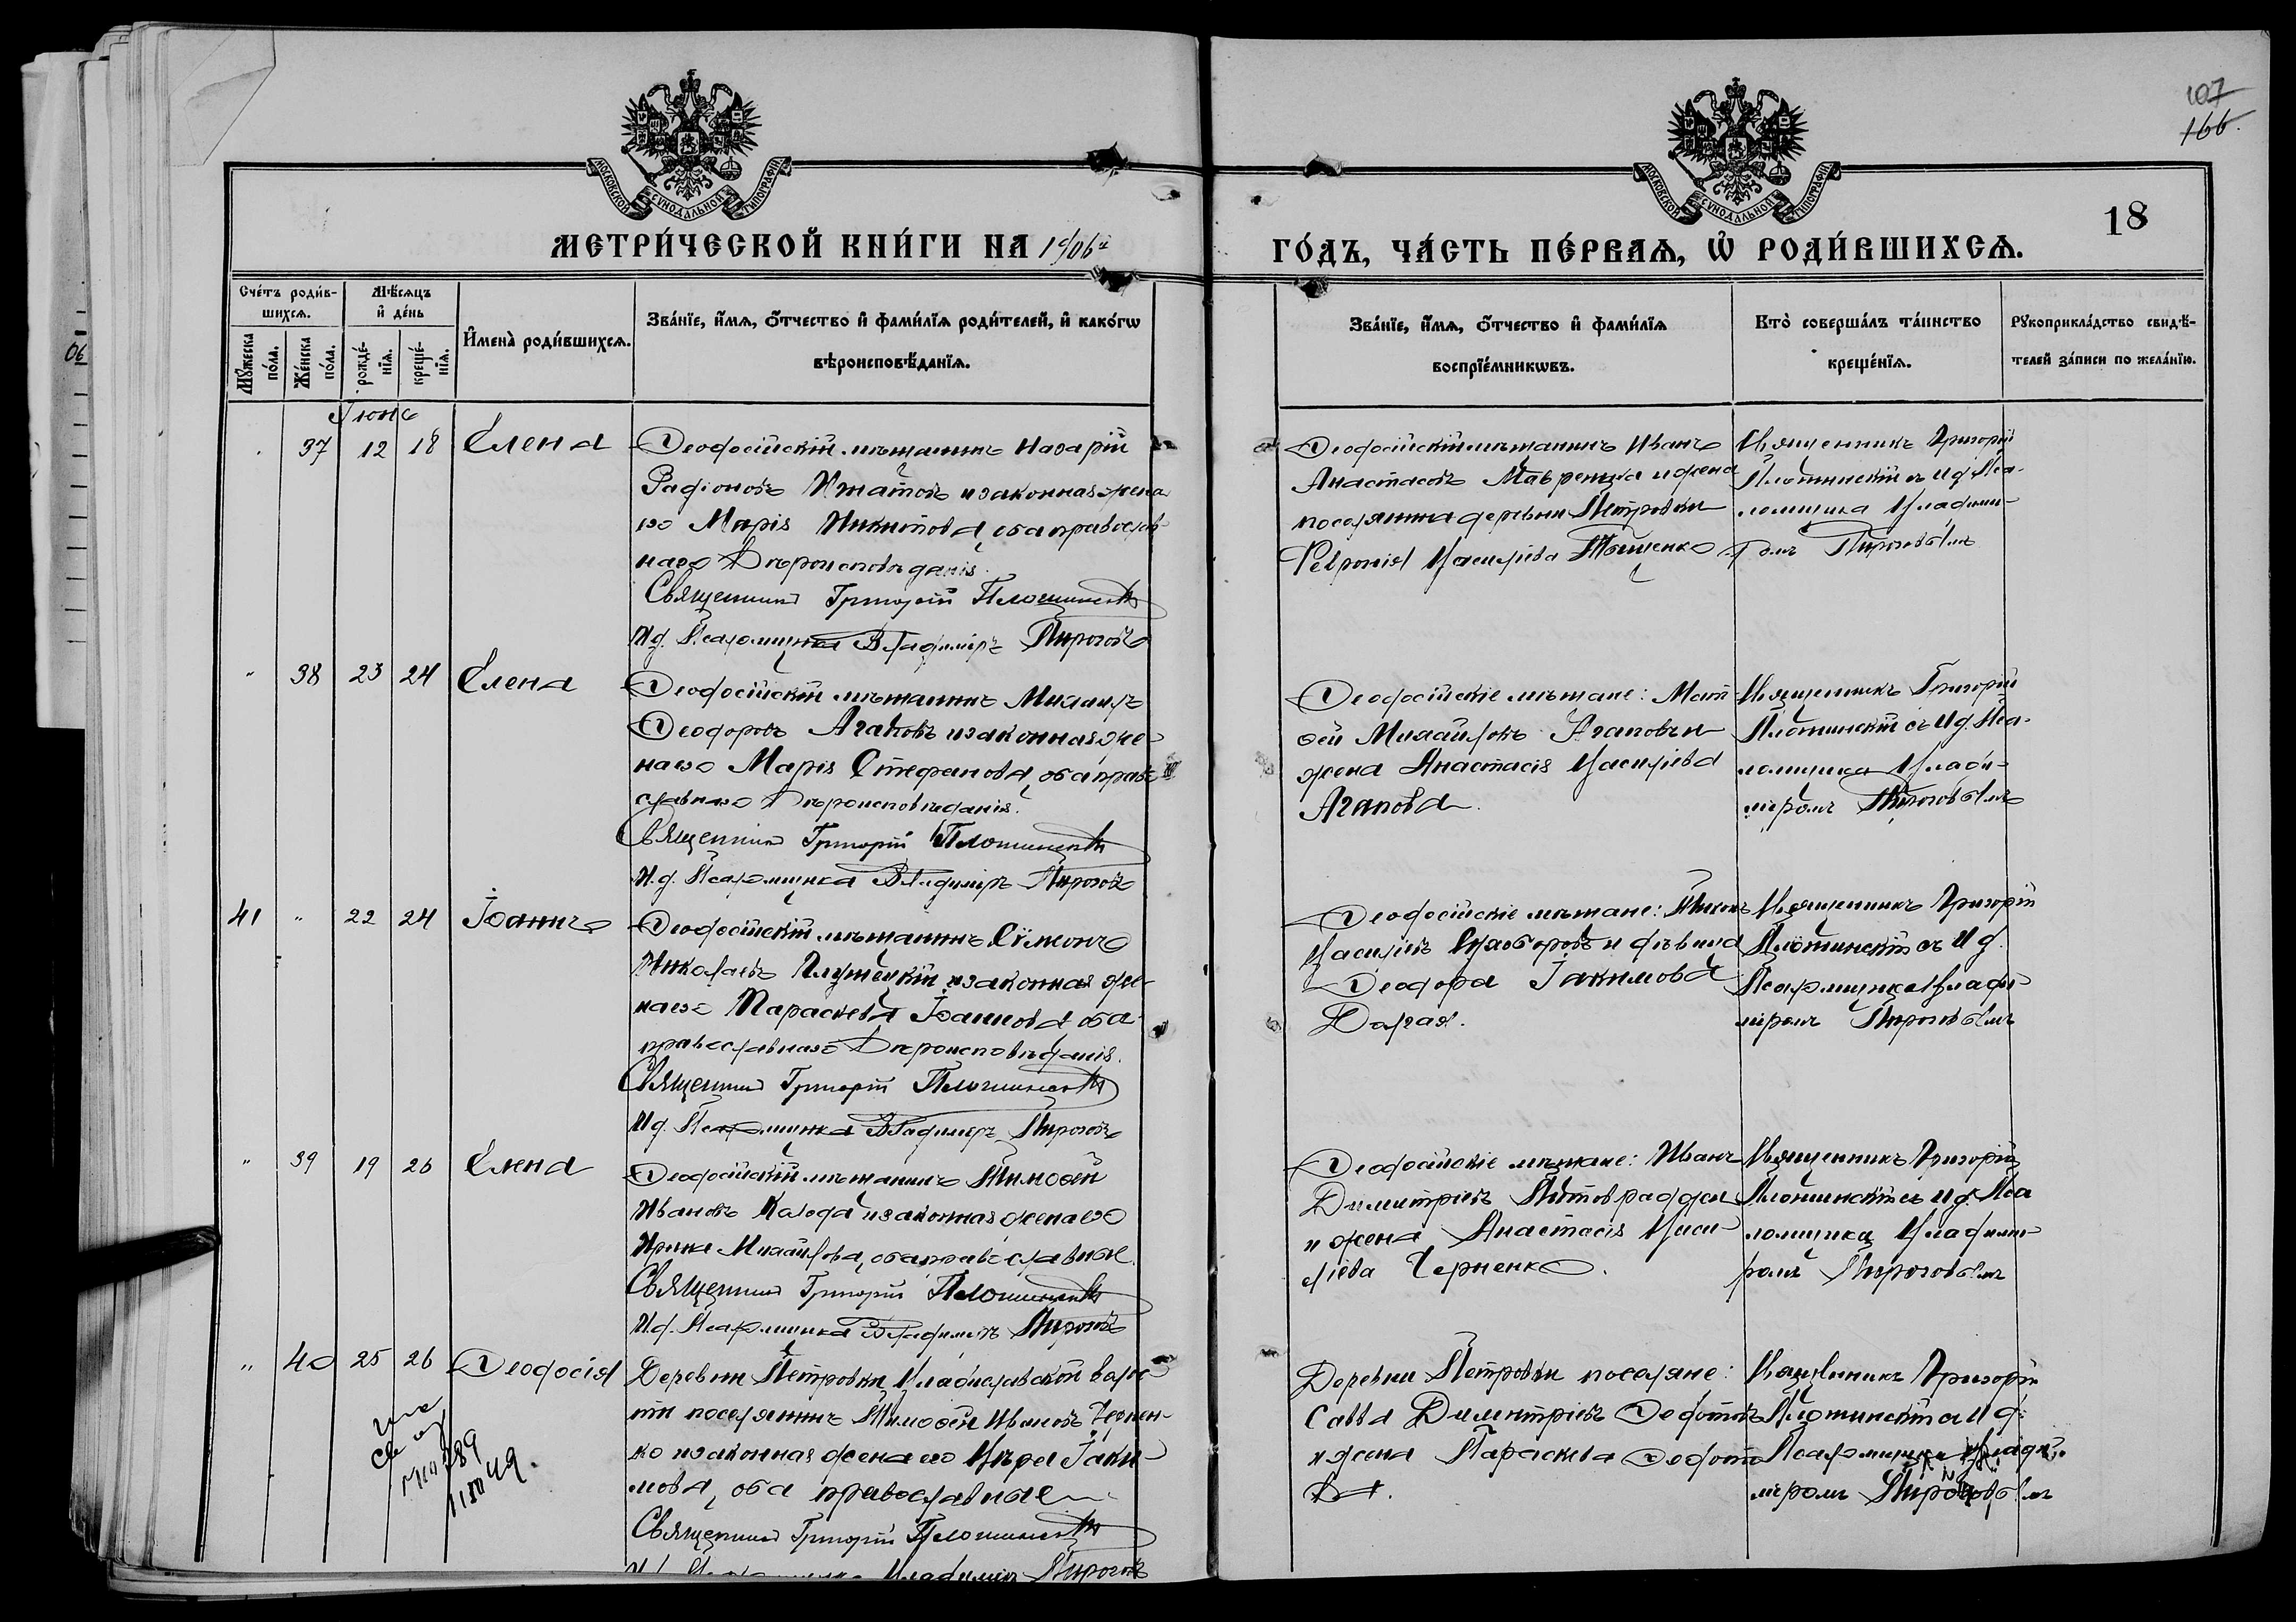 107
166.
МОСКОВСКОЙ СУНОДАЛЬНОЙ ТИПОГРАФІИ
МОСКОВСКОЙ СУНОДАЛЬНОЙ ТИПОГРАФІИ
18
МЕТРИ́ЧЕСКОЙ КНИ́ГИ НА 1906й
ГО́ДЪ, ЧА́СТЬ ПЕ́РВАѦ, Ѡ҆ РОДИ́ВШИХСѦ.
Сче́тъ роди́в-
шихсѧ.
Мѣ́сѧцъ
и҆ де́нь
Мꙋ́жеска
по́ла.
Же́нска
по́ла.
рожде́-
нїѧ.
креще́-
нїѧ.
И҆мена̀ роди́вшихсѧ.
Зва́нїе, и҆́мѧ, ѻ҆́тчество и҆ фами́лїѧ роди́телей, и҆ како́гѡ
вѣроисповѣ́данїѧ.
Зва́нїе, и҆́мѧ, ѻ҆́тчество и҆ фами́лїѧ
воспрїе́мникѡвъ.
Кто̀ соверша́лъ та́инство
креще́нїѧ.
Рꙋкоприкла́дство свидѣ́-
телей за́писи по жела́нїю.
Іюнь
37 12 18 Елена
Ѳеодосійскій мѣщанинъ Назарій
Радіоновъ и законная жена
его Марія Никитова, оба православ-
наго вѣроисповѣданія.
Священникъ Григорій Плотинскій
И.д. Псаломщика Владиміръ Пироговъ
Ѳеодосійскій мѣщанинъ Иванъ
Анастасовъ Мавренжа и жена
поселянина деревни Петровки
Февронія Василіева Тищенко
Священникъ Григорій
Плотинскій съ И.д. Пса-
ломщика Владими-
ромъ Пироговымъ
" 38 23 24 Елена
Ѳеодосійскій мѣщанинъ Михаилъ
Ѳеодоровъ Агаповъ и законная же-
на его Марія Стефанова, оба право-
славнаго вѣроисповѣданія.
Священникъ Григорій Плотинскій
И.д. Псаломщика Владиміръ Пироговъ
Ѳеодосійскіе мѣщане: Мат-
ѳей Михайловъ Агаповъ и
жена Анастасія Василіева
Агапова.
Священникъ Григорій
Плотинскій съ И.д. Пса-
ломщика Влади-
міромъ Пироговымъ
41 " 22 24 Іоаннъ
Ѳеодосійскій мѣщанинъ Сѵмеонъ
Николаевъ и законная же-
на его Параскева Іоаннова оба
православнаго вѣроисповѣданія.
Священникъ Григорій Плотинскій
И.д. Псаломщика Владиміръ Пироговъ
Ѳеодосійскіе мѣщане:
Василіевъ и дѣвица
Ѳеодора Іакимова
Долгая.
Священникъ Григорій
Плотинскій съ И.д.
Псаломщика Влади-
міромъ Пироговымъ
" 39 19 26 Елена
Ѳеодосійскій мѣщанинъ Тимоѳей
Ивановъ Калода и законная жена его
Ирина Михайлова, оба православные.
Священникъ Григорій Плотинскій
И.д. Псаломщика Владиміръ Пироговъ
Ѳеодосійскіе мѣщане: Иванъ
Димитріевъ
и жена Анастасія Васи-
ліева Черненко.
Священникъ Григорій
Плотинскій съ И.д. Пса-
ломщика Владими-
ромъ Пироговымъ
" 40 25 26 Ѳеодосія
Деревни Петровки, Владиславской волос-
ти поселянинъ Тимоѳей Ивановъ Чернен-
ко и законная жена его Вѣра Іаки-
мова, оба православные
Священникъ Григорій Плотинскій
И.д. Псаломщика Владиміръ Пироговъ
Деревни Петровки поселяне:
Савва Димитріевъ Ѳедотовъ
и жена Параскева Ѳедото-
ва.
Священникъ Григорій
Плотинскій съ И.д.
Псаломщика Влади-
міромъ Пироговымъ
06